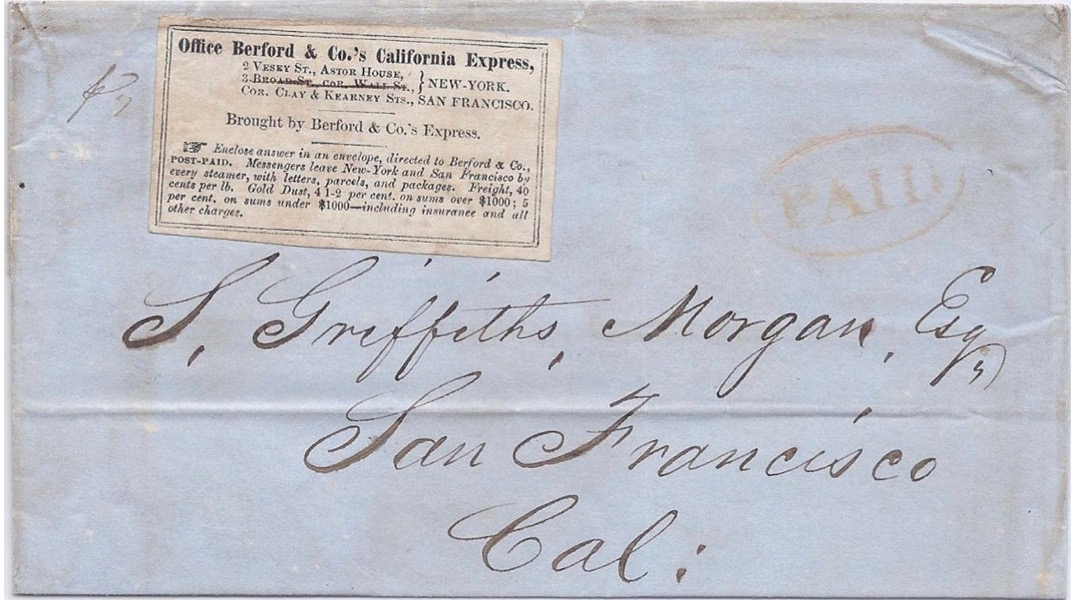 Office Berford & Co.'s California Express,
2 Vesey St., Astor House,
3 Broad St., cor. Wall St., } NEW-YORK.
Cor. Clay & Kearney Sts., SAN FRANCISCO.
Brought by Berford & Co.'s Express.
☞ Enclose answer in an envelope, directed to Berford & Co.,
POST-PAID. Messengers leave New-York and San Francisco by
every steamer, with letters, parcels, and packages. Freight, 40
cents per lb. Gold Dust, 4 1-2 per cent. on sums over $1000; 5
per cent. on sums under $1000—including insurance and all
other charges.
PAID
S, Griffiths, Morgan, Esq,
San Francisco
Cal: